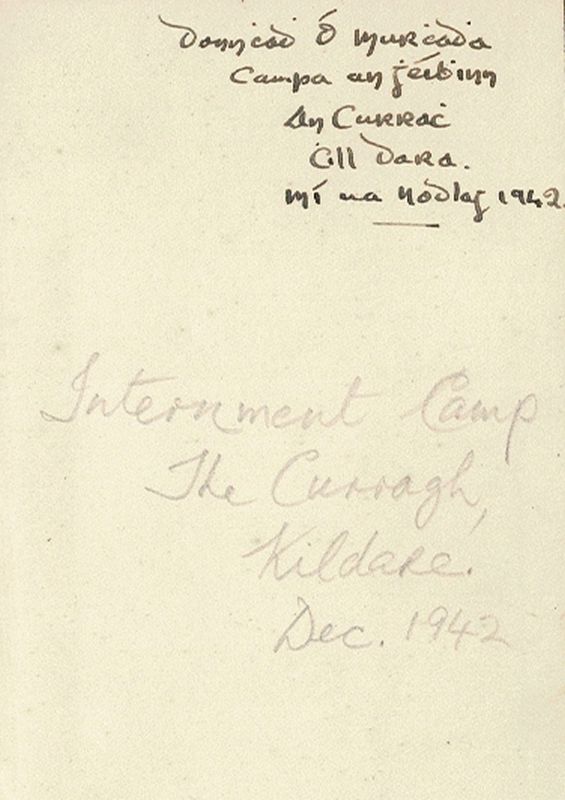 Donnċaḋ Ó Murċaḋa
Campa an ġéiḃinn
An Curraċ
Cill Dara.
Mí na Nodlag 1942.
Internment Camp
The Curragh,
Kildare.
Dec. 1942